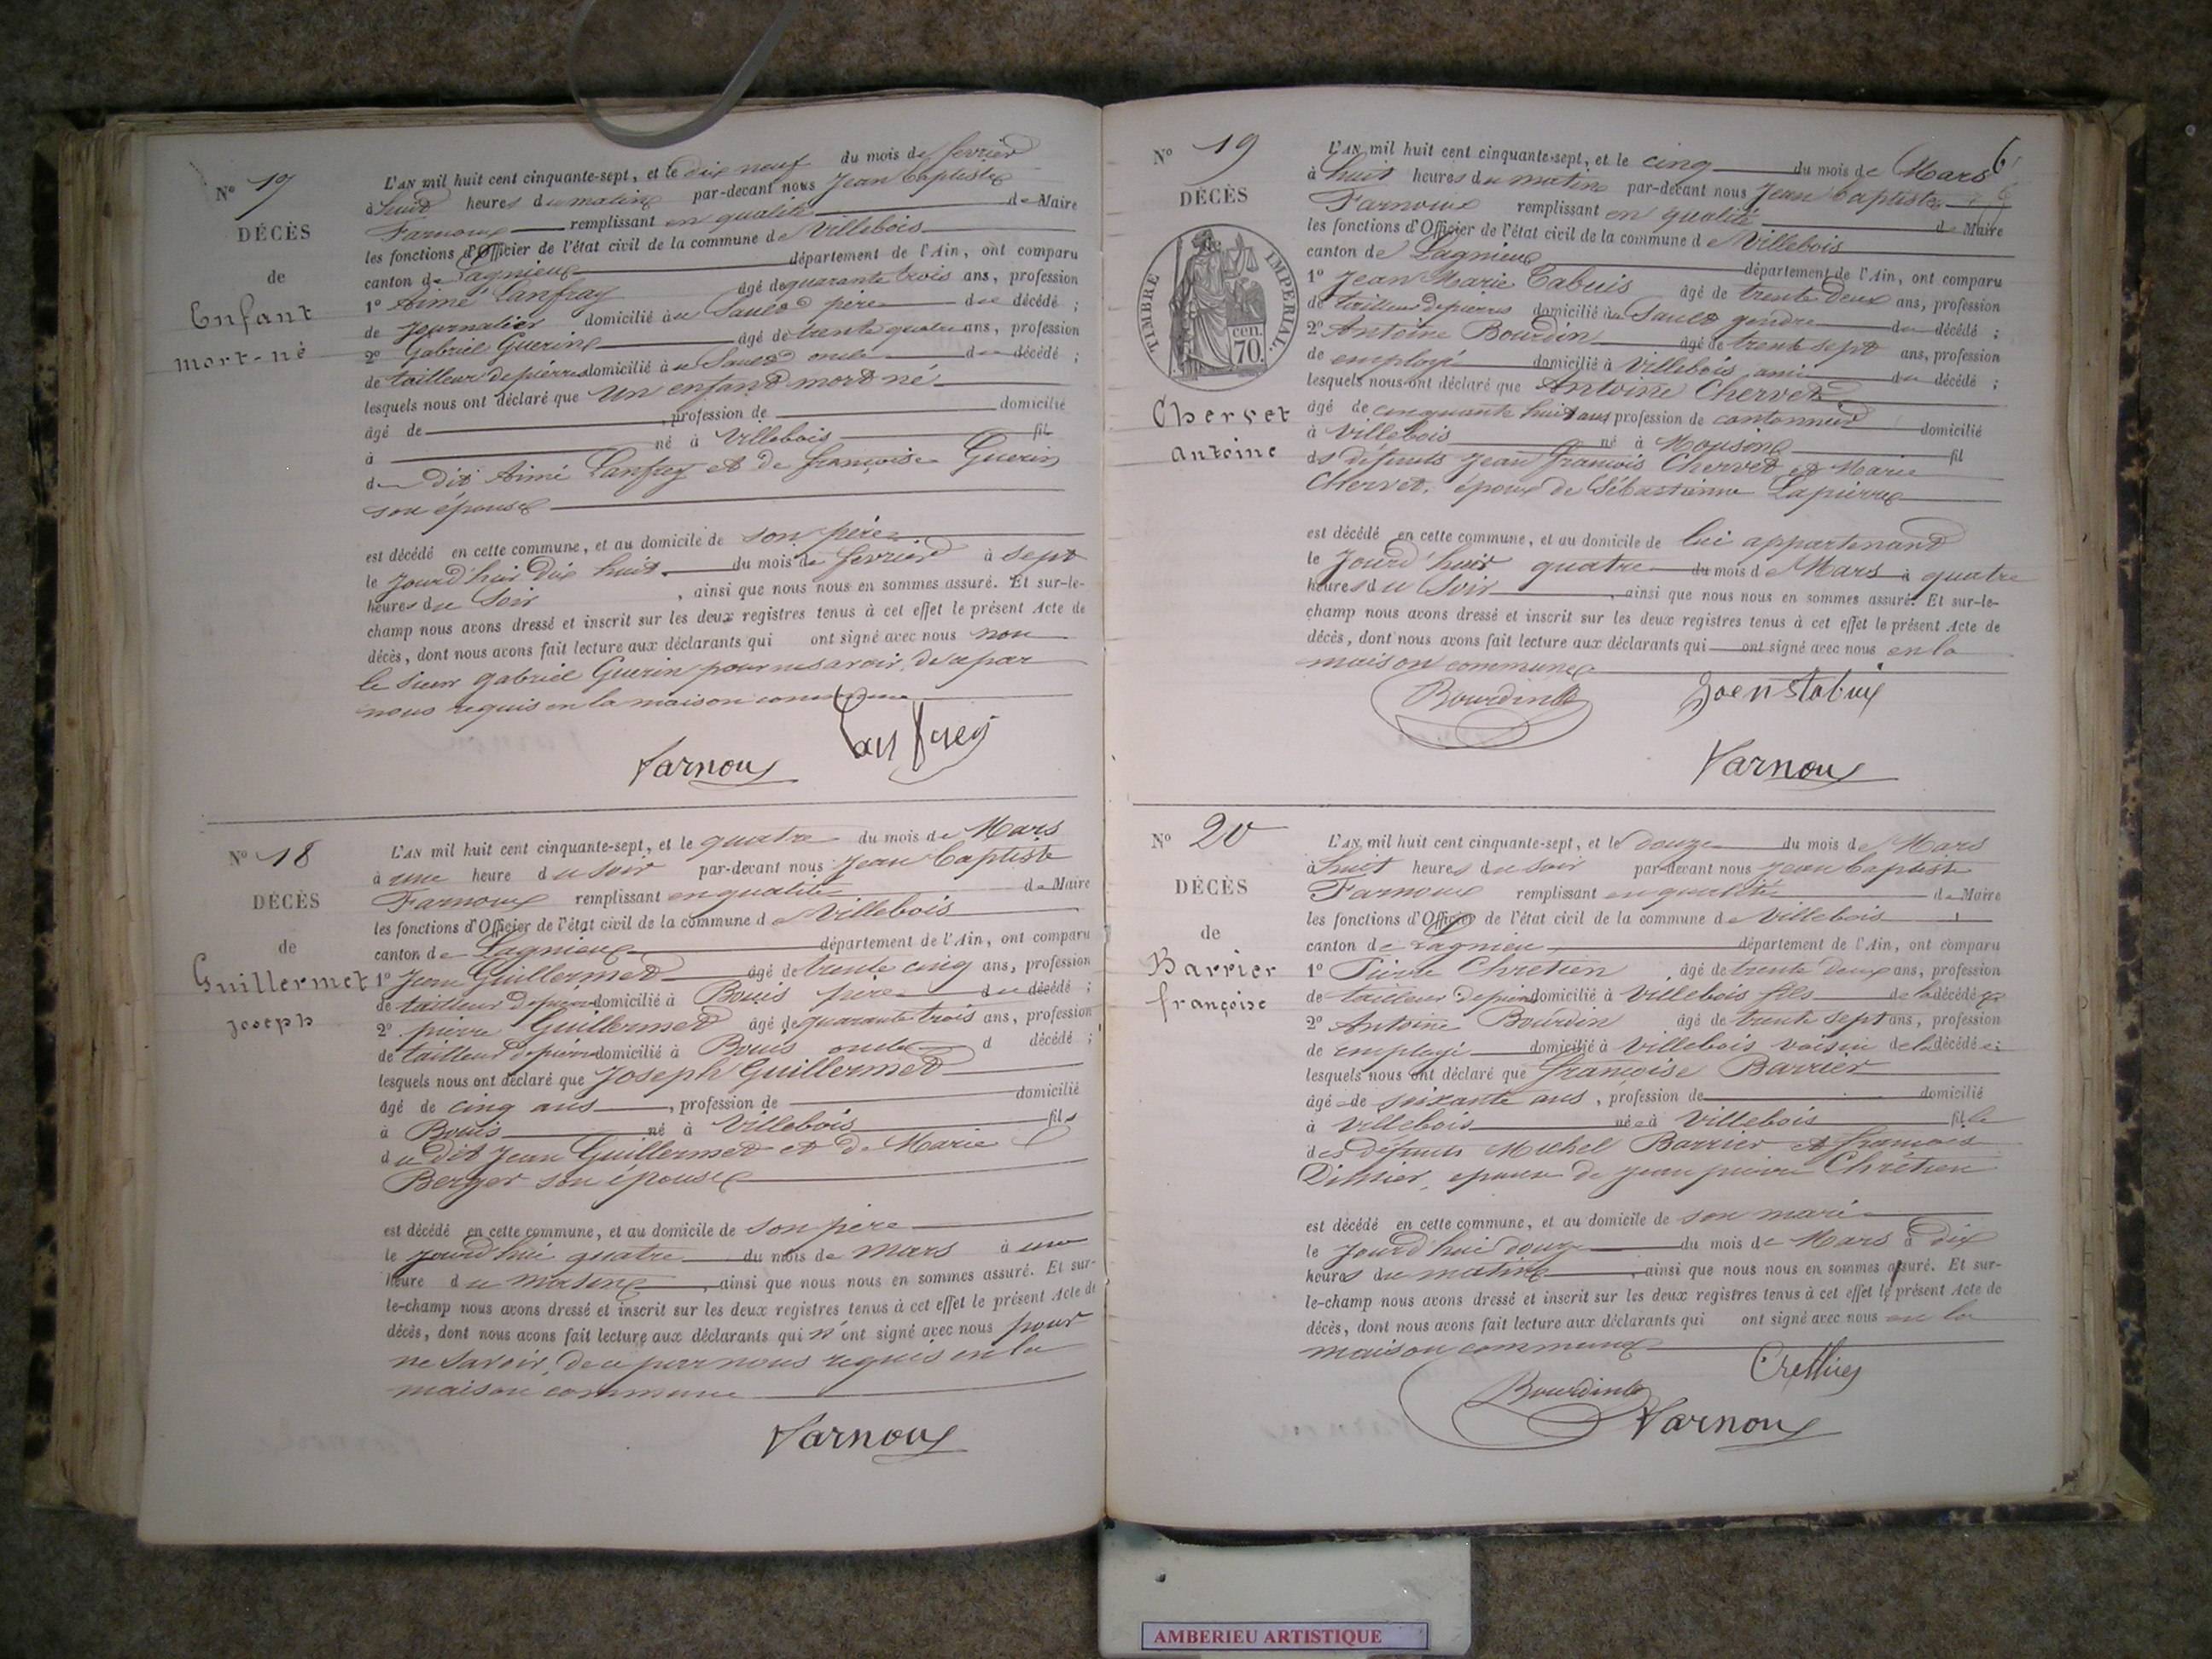 N° 17
DÉCÈS
de
Enfant
mort-né
L'AN mil huit cent cinquante-sept, et le dix neuf du mois de fevrier
à huit heures du matin par-devant nous Jean Baptiste
Farnoux remplissant en qualité de Maire
les fonctions d'Officier de l'état civil de la commune de Villebois
canton de Lagnieux département de l'Ain, ont comparu
1° Aimé Lanfray âgé de quarante trois ans, profession
de Journalier domicilié au Sault père du décédé ;
2° Gabriel Guerin âgé de trente quatre ans, profession
de tailleur de pierres domicilié au Sault oncle du décédé ;
lesquels nous ont déclaré que Un enfant mort né
âgé de , profession de domicilié
à né à Villebois fil
du dit Aimé Lanfray et de françoise Guerin
son épouse
est décédé en cette commune, et au domicile de son père
le jourd'hier dix huit du mois de fevrier à sept
heures du soir , ainsi que nous nous en sommes assuré. Et sur-le-
champ nous avons dressé et inscrit sur les deux registres tenus à cet effet le présent Acte de
décès, dont nous avons fait lecture aux déclarants qui ont signé avec nous non
le sieur gabriel Guerin pour ne savoir, de ce par
nous requis en la maison commune
Lanfrey
Farnoux
N° 18
DÉCÈS
de
Guillermet
Joseph
L'AN mil huit cent cinquante-sept, et le quatre du mois de Mars
à une heure du soir par-devant nous Jean Baptiste
Farnoux remplissant en qualité de Maire
les fonctions d'Officier de l'état civil de la commune de Villebois
canton de Lagnieux département de l'Ain, ont comparu
1° Jean Guillermet âgé de trente cinq ans, profession
de tailleur de pierre domicilié à Bouis père du décédé ;
2° pierre Guillermet âgé de quarante trois ans, profession
de tailleur de pierre domicilié à Bouis oncle d décédé ;
lesquels nous ont déclaré que Joseph Guillermet
âgé de cinq ans , profession de domicilié
à Bouis né à Villebois fils
du dit Jean Guillermet et de Marie
Berger son épouse
est décédé en cette commune, et au domicile de son père
le jourd'hui quatre du mois de mars à une
heure du matin , ainsi que nous nous en sommes assuré. Et sur-
le-champ nous avons dressé et inscrit sur les deux registres tenus à cet effet le présent Acte de
décès, dont nous avons fait lecture aux déclarants qui n'ont signé avec nous pour
ne savoir, de ce par nous requis en la
maison commune
Farnoux
6
N° 19
DÉCÈS
TIMBRE IMPERIAL.
70. cen.
Chervet
antoine
L'AN mil huit cent cinquante-sept, et le cinq du mois de Mars
à huit heures du matin par-devant nous Jean Baptiste
Farnoux remplissant en qualité de Maire
les fonctions d'Officier de l'état civil de la commune de Villebois
canton de Lagnieux département de l'Ain, ont comparu
1° Jean Marie Tabuis âgé de trente deux ans, profession
de tailleur de pierres domicilié au Sault gendre du décédé ;
2° Antoine Bourdin âgé de trente sept ans, profession
de employé domicilié à Villebois ami du décédé ;
lesquels nous ont déclaré que Antoine Chervet
âgé de cinquante huit ans profession de cantonnier domicilié
à Villebois né à fil
des défunts Jean françois Chervet et Marie
Chervet, époux de Sébastienne Lapierre
est décédé en cette commune, et au domicile de lui appartenant
le Jourd'hier quatre du mois de Mars à quatre
heures du soir , ainsi que nous nous en sommes assuré. Et sur-le-
champ nous avons dressé et inscrit sur les deux registres tenus à cet effet le présent Acte de
décès, dont nous avons fait lecture aux déclarants qui ont signé avec nous en la
maison commune
Bourdin
Farnoux
N° 20
DÉCÈS
de
Barrier
françoise
L'AN mil huit cent cinquante-sept, et le douze du mois de Mars
à huit heures du soir par-devant nous Jean Baptiste
Farnoux remplissant en qualité de Maire
les fonctions d'Officier de l'état civil de la commune de Villebois
canton de Lagnieu département de l'Ain, ont comparu
1° Pierre Chretien âgé de trente deux ans, profession
de tailleur de pierre domicilié à Villebois fils de la décédée
2° Antoine Bourdin âgé de trente sept ans, profession
de employé domicilié à Villebois voisin de la décédée ;
lesquels nous ont déclaré que françoise Barrier
âgée de soixante ans , profession de domicilié
à Villebois née à Villebois fille
des défunts Michel Barrier et françois
épouse de Jean pierre Chrétien
est décédé en cette commune, et au domicile de son mari
le Jourd'hui douze du mois de Mars à dix
heures du matin , ainsi que nous nous en sommes assuré. Et sur-
le-champ nous avons dressé et inscrit sur les deux registres tenus à cet effet le présent Acte de
décès, dont nous avons fait lecture aux déclarants qui ont signé avec nous en la
maison commune
Bourdin
Farnoux
AMBERIEU ARTISTIQUE